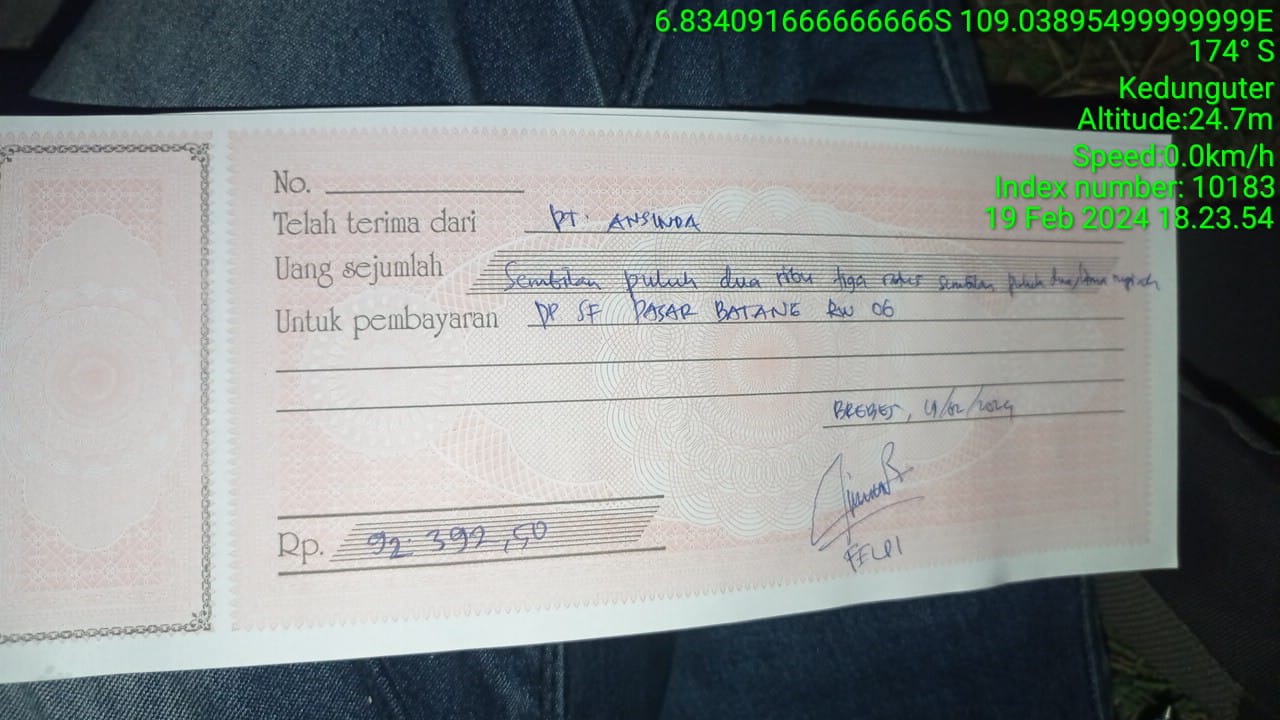 6.834091666666666S 109.03895499999999E
174° S
Kedunguter
Altitude:24.7m
Speed:0.0km/h
Index number: 10183
19 Feb 2024 18.23.54
No.
Telah terima dari PT. ANSINDA
Uang sejumlah Sembilan puluh dua ribu tiga ratus sembilan puluh dua rupiah
Untuk pembayaran DP SF PASAR BATANG RW 06
BREBES,
Rp. 92.392,50